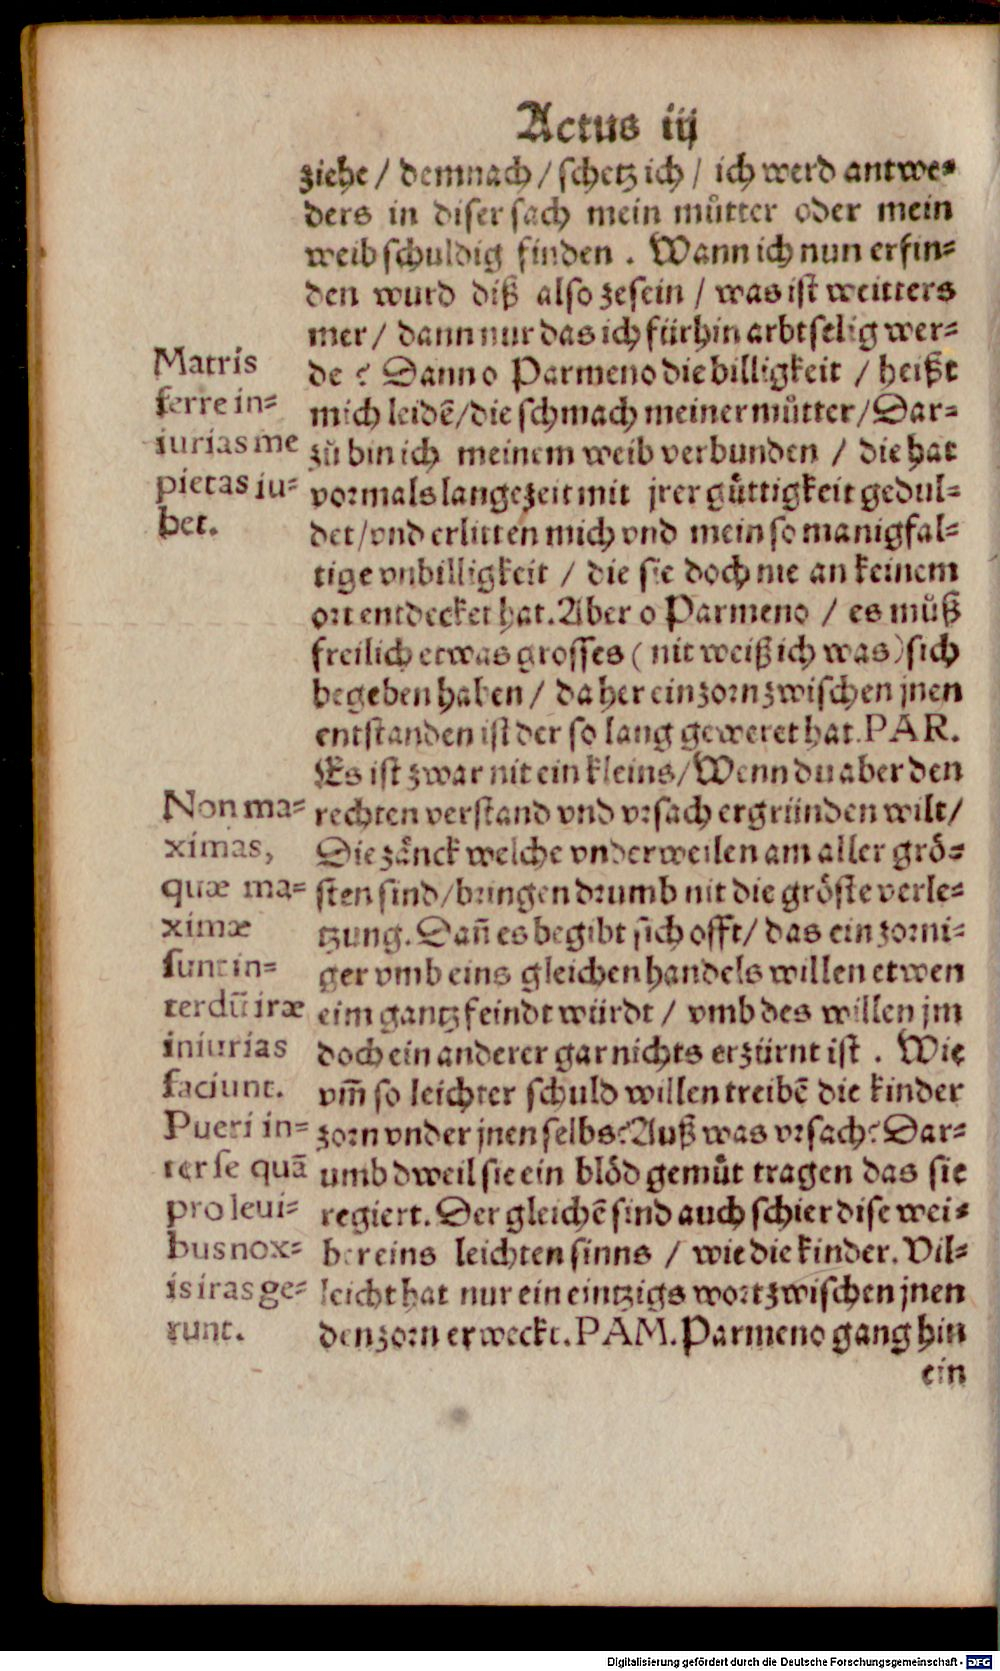 Actus iij
ziehe / demnach / schetz ich / ich werd antwe-
ders in diser sach mein můtter oder mein
weib schuldig finden . Wann ich nun erfin-
den wurd diß also zesein / was ist weitters
mer / dann nur das ich fürhin arbtselig wer-
de ? Dann o Parmeno die billigkeit / heißt
mich leidē / die schmach meiner můtter / Dar-
zů bin ich meinem weib verbunden / die hat
vormals lange zeit mit jrer gůttigkeit gedul-
det / vnd erlitten mich vnd mein so manigfal-
tige vnbilligkeit / die sie doch nie an keinem
ort entdecket hat. Aber o Parmeno / es můß
freilich etwas grosses ( nit weiß ich was ) sich
begeben haben / daher ein zorn zwischen jnen
entstanden ist der so lang geweret hat. PAR.
Es ist zwar nit ein kleins / Wenn du aber den
rechten verstand vnd vrsach ergründen wilt /
Die zånck welche vnderweilen am aller grö-
sten sind / bringen drumb nit die gröste verle-
tzung. Dañ es begibt sich offt / das ein zorni-
ger vmb eins gleichen handels willen etwen
eim gantz feindt würdt / vmb des willen jm
doch ein anderer gar nichts erzürnt ist . Wie
vm̄ so leichter schuld willen treibē die kinder
zorn vnder jnen selbs? Auß was vrsach? Dar-
umb dweil sie ein blöd gemůt tragen das sie
regiert. Der gleichē sind auch schier dise wei-
ber eins leichten sinns / wie die kinder. Vil-
leicht hat nur ein eintzigs wort zwischen jnen
den zorn erweckt. PAM. Parmeno gang hin
ein
Matris
ferre in-
iurias me
pietas iu-
bet.
Non ma-
ximas,
quæ ma-
ximæ
sunt in-
terdū iræ
iniurias
faciunt.
Pueri in-
ter se quā
pro leui-
bus nox-
is iras ge-
runt.
Digitalisierung gefördert durch die Deutsche Forschungsgemeinschaft - DFG